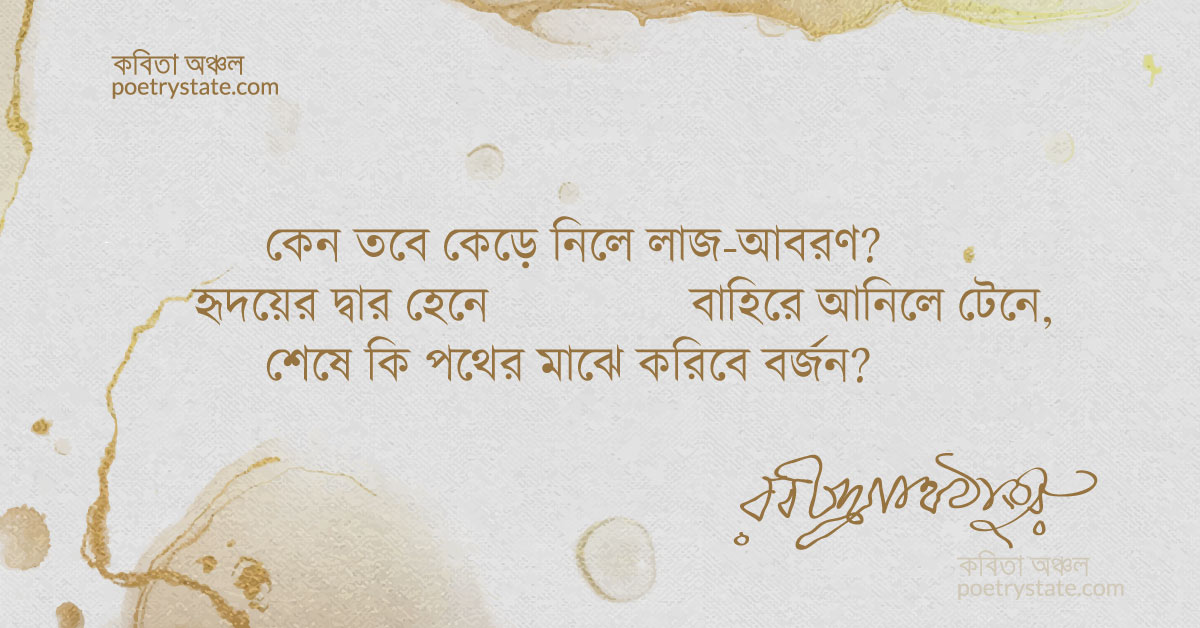 কবিতা অঞ্চল
poetrystate.com
কেন তবে কেড়ে নিলে লাজ-আবরণ?
হৃদয়ের দ্বার হেনে বাহিরে আনিলে টেনে,
শেষে কি পথের মাঝে করিবে বর্জন?
রবীন্দ্রনাথ ঠাকুর
কবিতা অঞ্চল
poetrystate.com